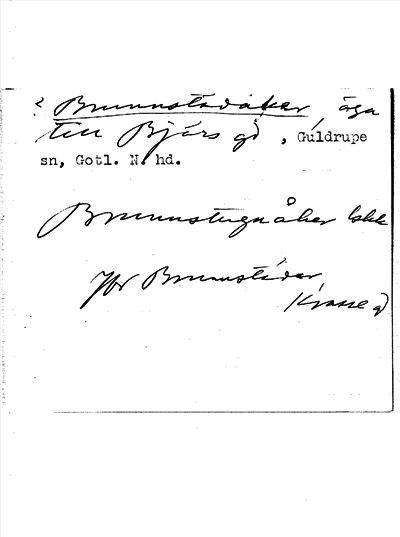 ? Brunnstädåker, äga
till Bjärs gd, Guldrupe
sn, Gotl. N. hd.
Brunnstugnåker lskk
Jfr Brunnstädar,
Krasse gd